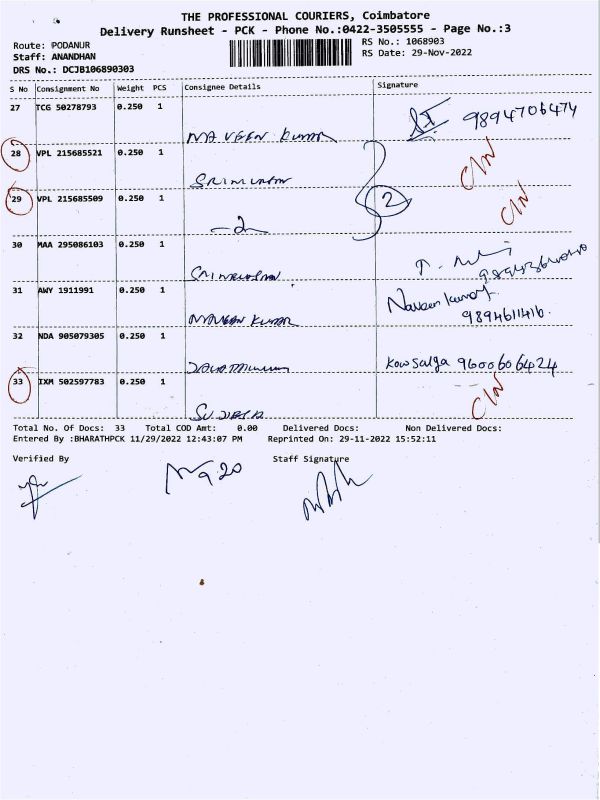 THE PROFESSIONAL COURIERS, Coimbatore
Delivery Runsheet - PCK - Phone No.:0422-3505555 - Page No.:3
Route: PODANUR
RS No.: 1068903
Staff: ANANDHAN
RS Date: 29-Nov-2022
DRS No.: DCJB106890303
S No Consignment No Weight PCS Consignee Details Signature
27 TCG 50278793 0.250 1 9894706474
NAVEEN KUMAR
28 VPL 215685521 0.250 1 C/N
29 VPL 215685509 0.250 1 2 C/N
30 MAA 295086103 0.250 1
31 AWY 1911991 0.250 1 Naveen kumar
9894611416.
KUMAR
32 NDA 905079305 0.250 1
Kowsalya 9600606424
33 IXM 502597783 0.250 1 C/N
Total No. Of Docs: 33 Total COD Amt: 0.00 Delivered Docs: Non Delivered Docs:
Entered By :BHARATHPCK 11/29/2022 12:43:07 PM Reprinted On: 29-11-2022 15:52:11
Verified By Staff Signature
9.20